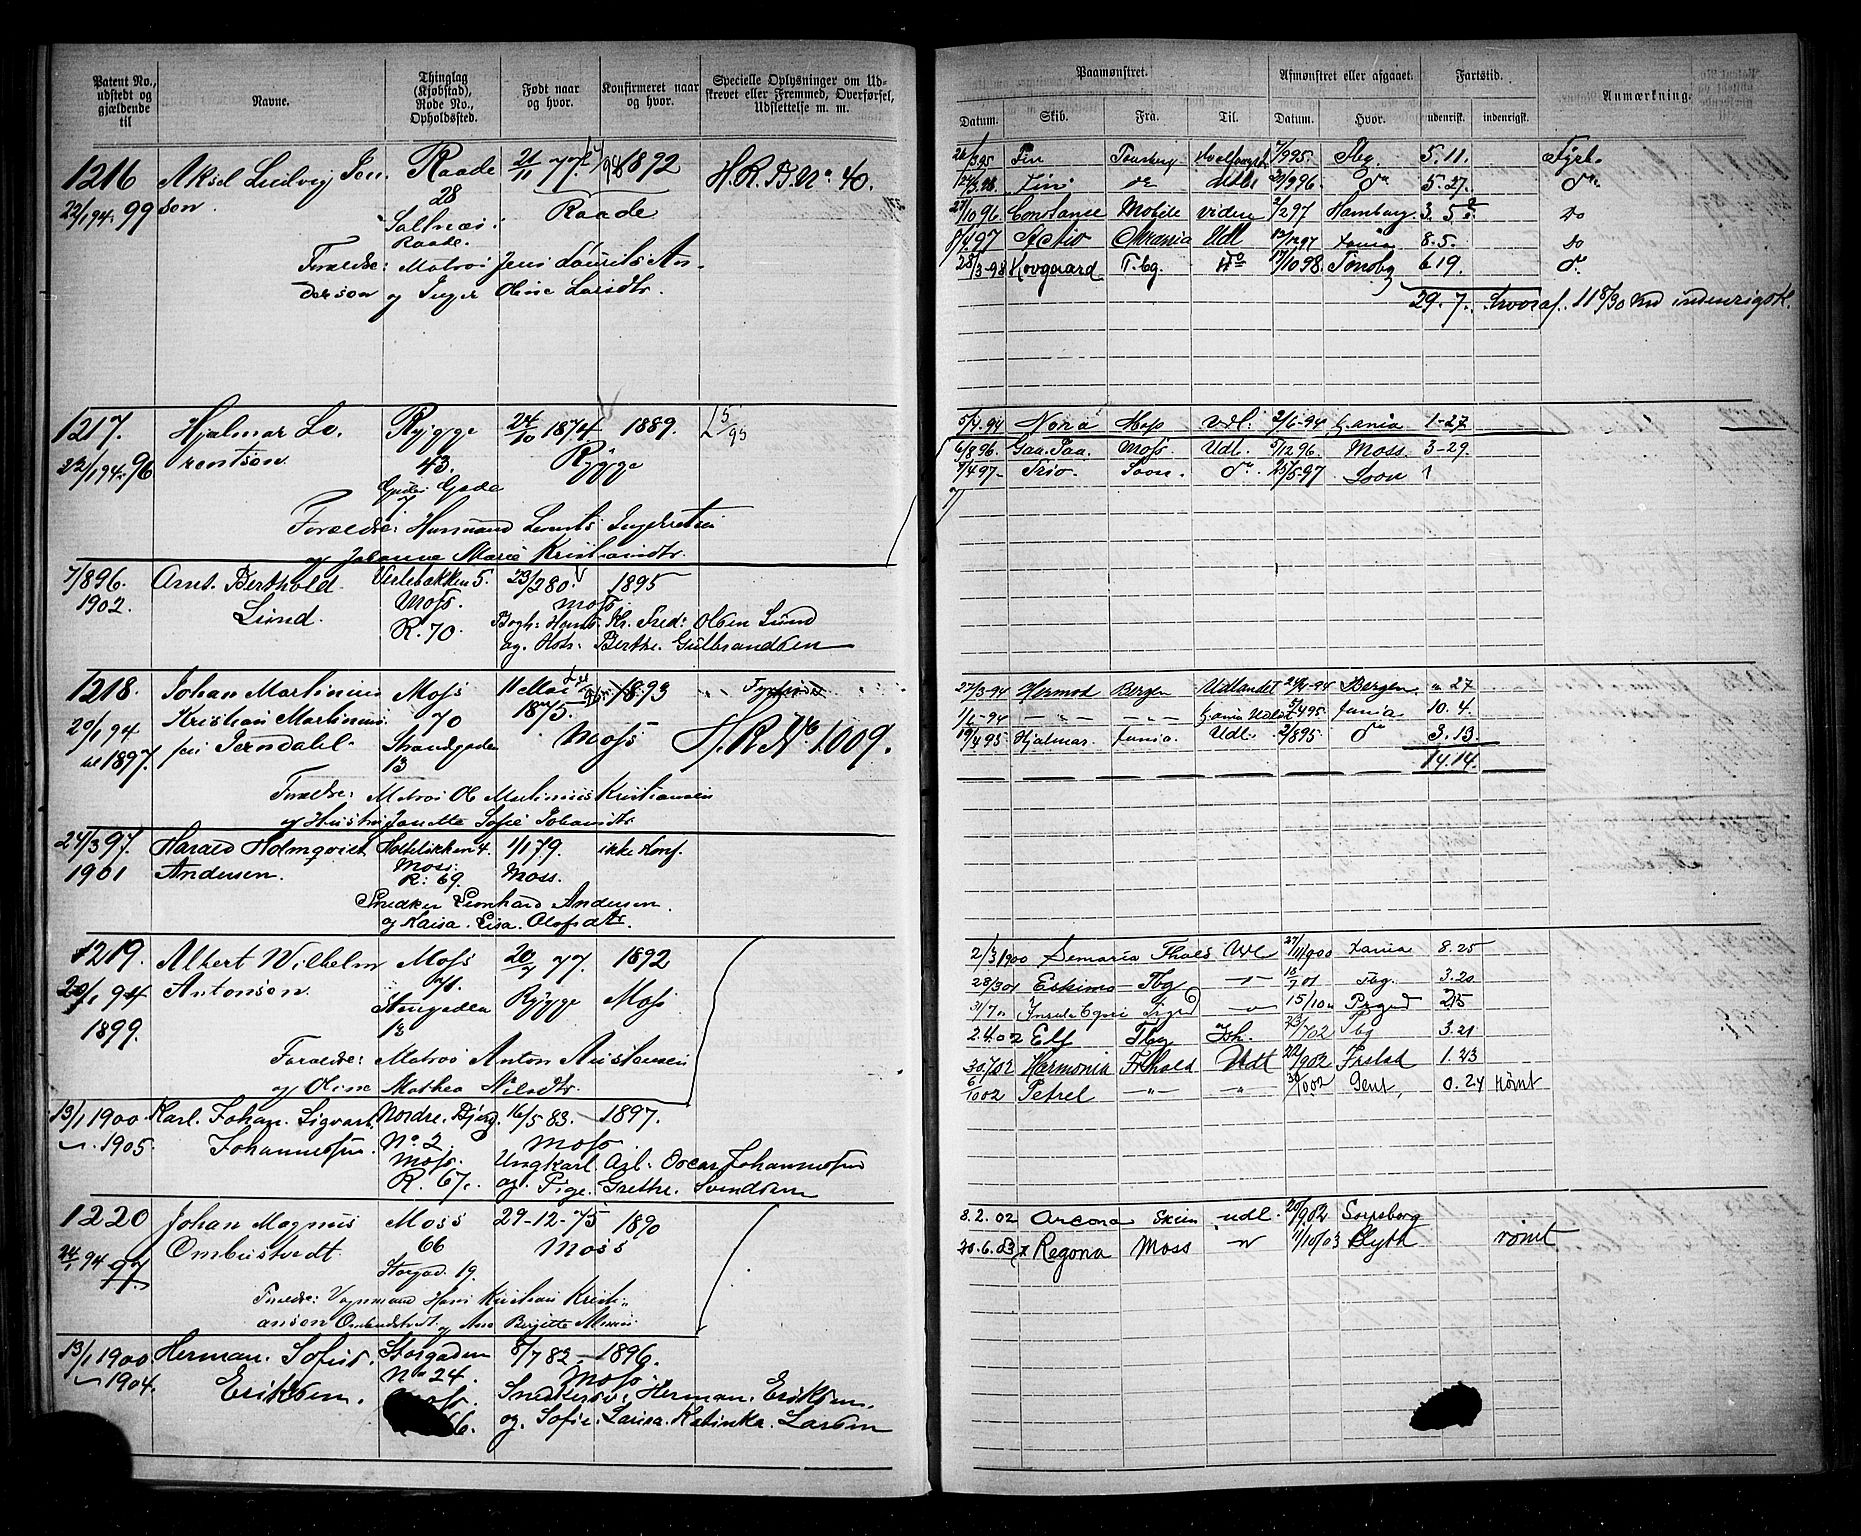 Patent No., udstedt og gjældende til
Navne.
Thinglag (Kjøbstad), Rode No., Opholdssted.
Født naar og hvor.
Konfirmeret naar og hvor.
Specielle Oplysninger om Udskrevet eller Fremmed, Overførsel, Udslettelse m. m.
1216 Aksel Ludvig Jen Raade 21/11 77. 1892 H.R.B. No. 40.
22/1 94. 99 sen. 28 Raade
Saltnæs
Raade.
Forældre: Matros Jens Laurits An-
dersen og Inger Oline Larsdtr.
1217. Hjalmar Lo- Rygge 24/10 1874 1889. L 5/95
22/1 94. 96 rentsen. 43. Rygge
Gade
Forældre: Husmand Lorents Ingebretsen
og Johanne Marie Kristiansdtr.
7/8 96. Arnt. Berthold Verlebakken 5. 23/2 80. 1895
1902. Lund. Moss. Moss.
R. 70. Hans. Kr. Fred: Olsen Lund
og. Berthe. Gulbrandsen
1218. Johan Martinius Moss 11 Mai 1893
20/1 94 Kristian Martinius- 70 1875. Moss H.R. No 1009.
1897. sen Jerndahl. Strandgaden
13
Forældre: Matros Ole Martinius Kristiansen
og Hustru Janette Sofie Johansdtr.
24/3 97. Harald Holmqvist 4. 1/1 79. ikke konf.
1901 Andersen. Moss. Moss.
R: 69.
Snedker Leonhard Andersen.
og Kaisa. Lisa. Olofsdtr.
1219. Albert Wilhelm Moss 20/7 77. 1892
20/1 94 Antonsen Rygge Moss
1899. Storgaden
13
Forældre: Matros Anton Kristiansen
og Oline Mathea Nilsdtr.
13/1 1900 Karl. Johan. Sigvart. Nordre. Bjerg. 16/5 83. 1897.
1905. Johannessen. No 2. Moss.
Moss. Ungkarl. Arb. Oscar Johannessen
R. 67. og. Pige. Grethe. Svendsen
1220 Johan Magnus Moss 29-12-75 1890
24/1 94 97. Ombustvedt. 66 Moss
Storgad. 19.
Forældre: Vognmand Hans Kristian Kristi-
ansen Ombustvedt og Ane Birgitte
13/1 1900 Herman. Sofus. Storgaden 8/7 82. 1896.
1904. Eriksen. No 24. Moss.
Moss. Herman. Eriksen.
og. Sofie. Larisa. Katinka. Larsen
Paamønstret.
Afmønstret eller afgaaet.
Fartstid.
Anmærkning.
Datum. Skib. Fra. Til. Datum. Hvor. udenrigsk. indenrigsk.
Fin Tønsberg 7/9 95. Tbg. 5. 11. Fyrb.
Fin do Udl. 96. do 5. 27. do
27/10 96 Constanse Mobile videre 2/2 97 Hamburg. 3. 5 do
8/4 97 Activ Udl 12/12 97 8. 5. do
28/3-98 Kovgaard T.bg. do 17/10 98. Tønsbg 6 19. do
29. 7. hvoraf. 11 8/30 Md indenrigsk.
5/4. 94 Nora Moss Udl. 2/6-94 Xania 1-27
6/8 96. Moss Udl. 5/12 96. Moss. 3-29.
7/4 97- Trio. Soon. do 25/5-97 Soon 1
27/3-94 Hermod Bergen Udlandet 94 Bergen " 27
1/6-94 — " — — " — 95. Xania 10. 4.
19/4 95 Hjalmar. Xania. Udl. 2/8 95 do 3. 13.
14. 14.
2/3 1900 Semaria Udl 27/11 1900 Xania 8. 25
28/3 01 Eskimo Tbg 18/7 01 Tbg. 3. 20
31/7 " 15/10 " 2.15
2.4.02 Elf Tbg 23/7 02 Tbg 3. 21
30/7 02 Harmonia Frhald Udl 22/9 02 Frstad 1. 23
6/10 02 Petrel — " — " 30/10 02 Gent, 0. 24 rømt
8. 2. 02 Arcona Skien udl. 20/9 02 Sarpsborg
30. 6. 03 Regona Moss 1/10 03 Blyth rømt